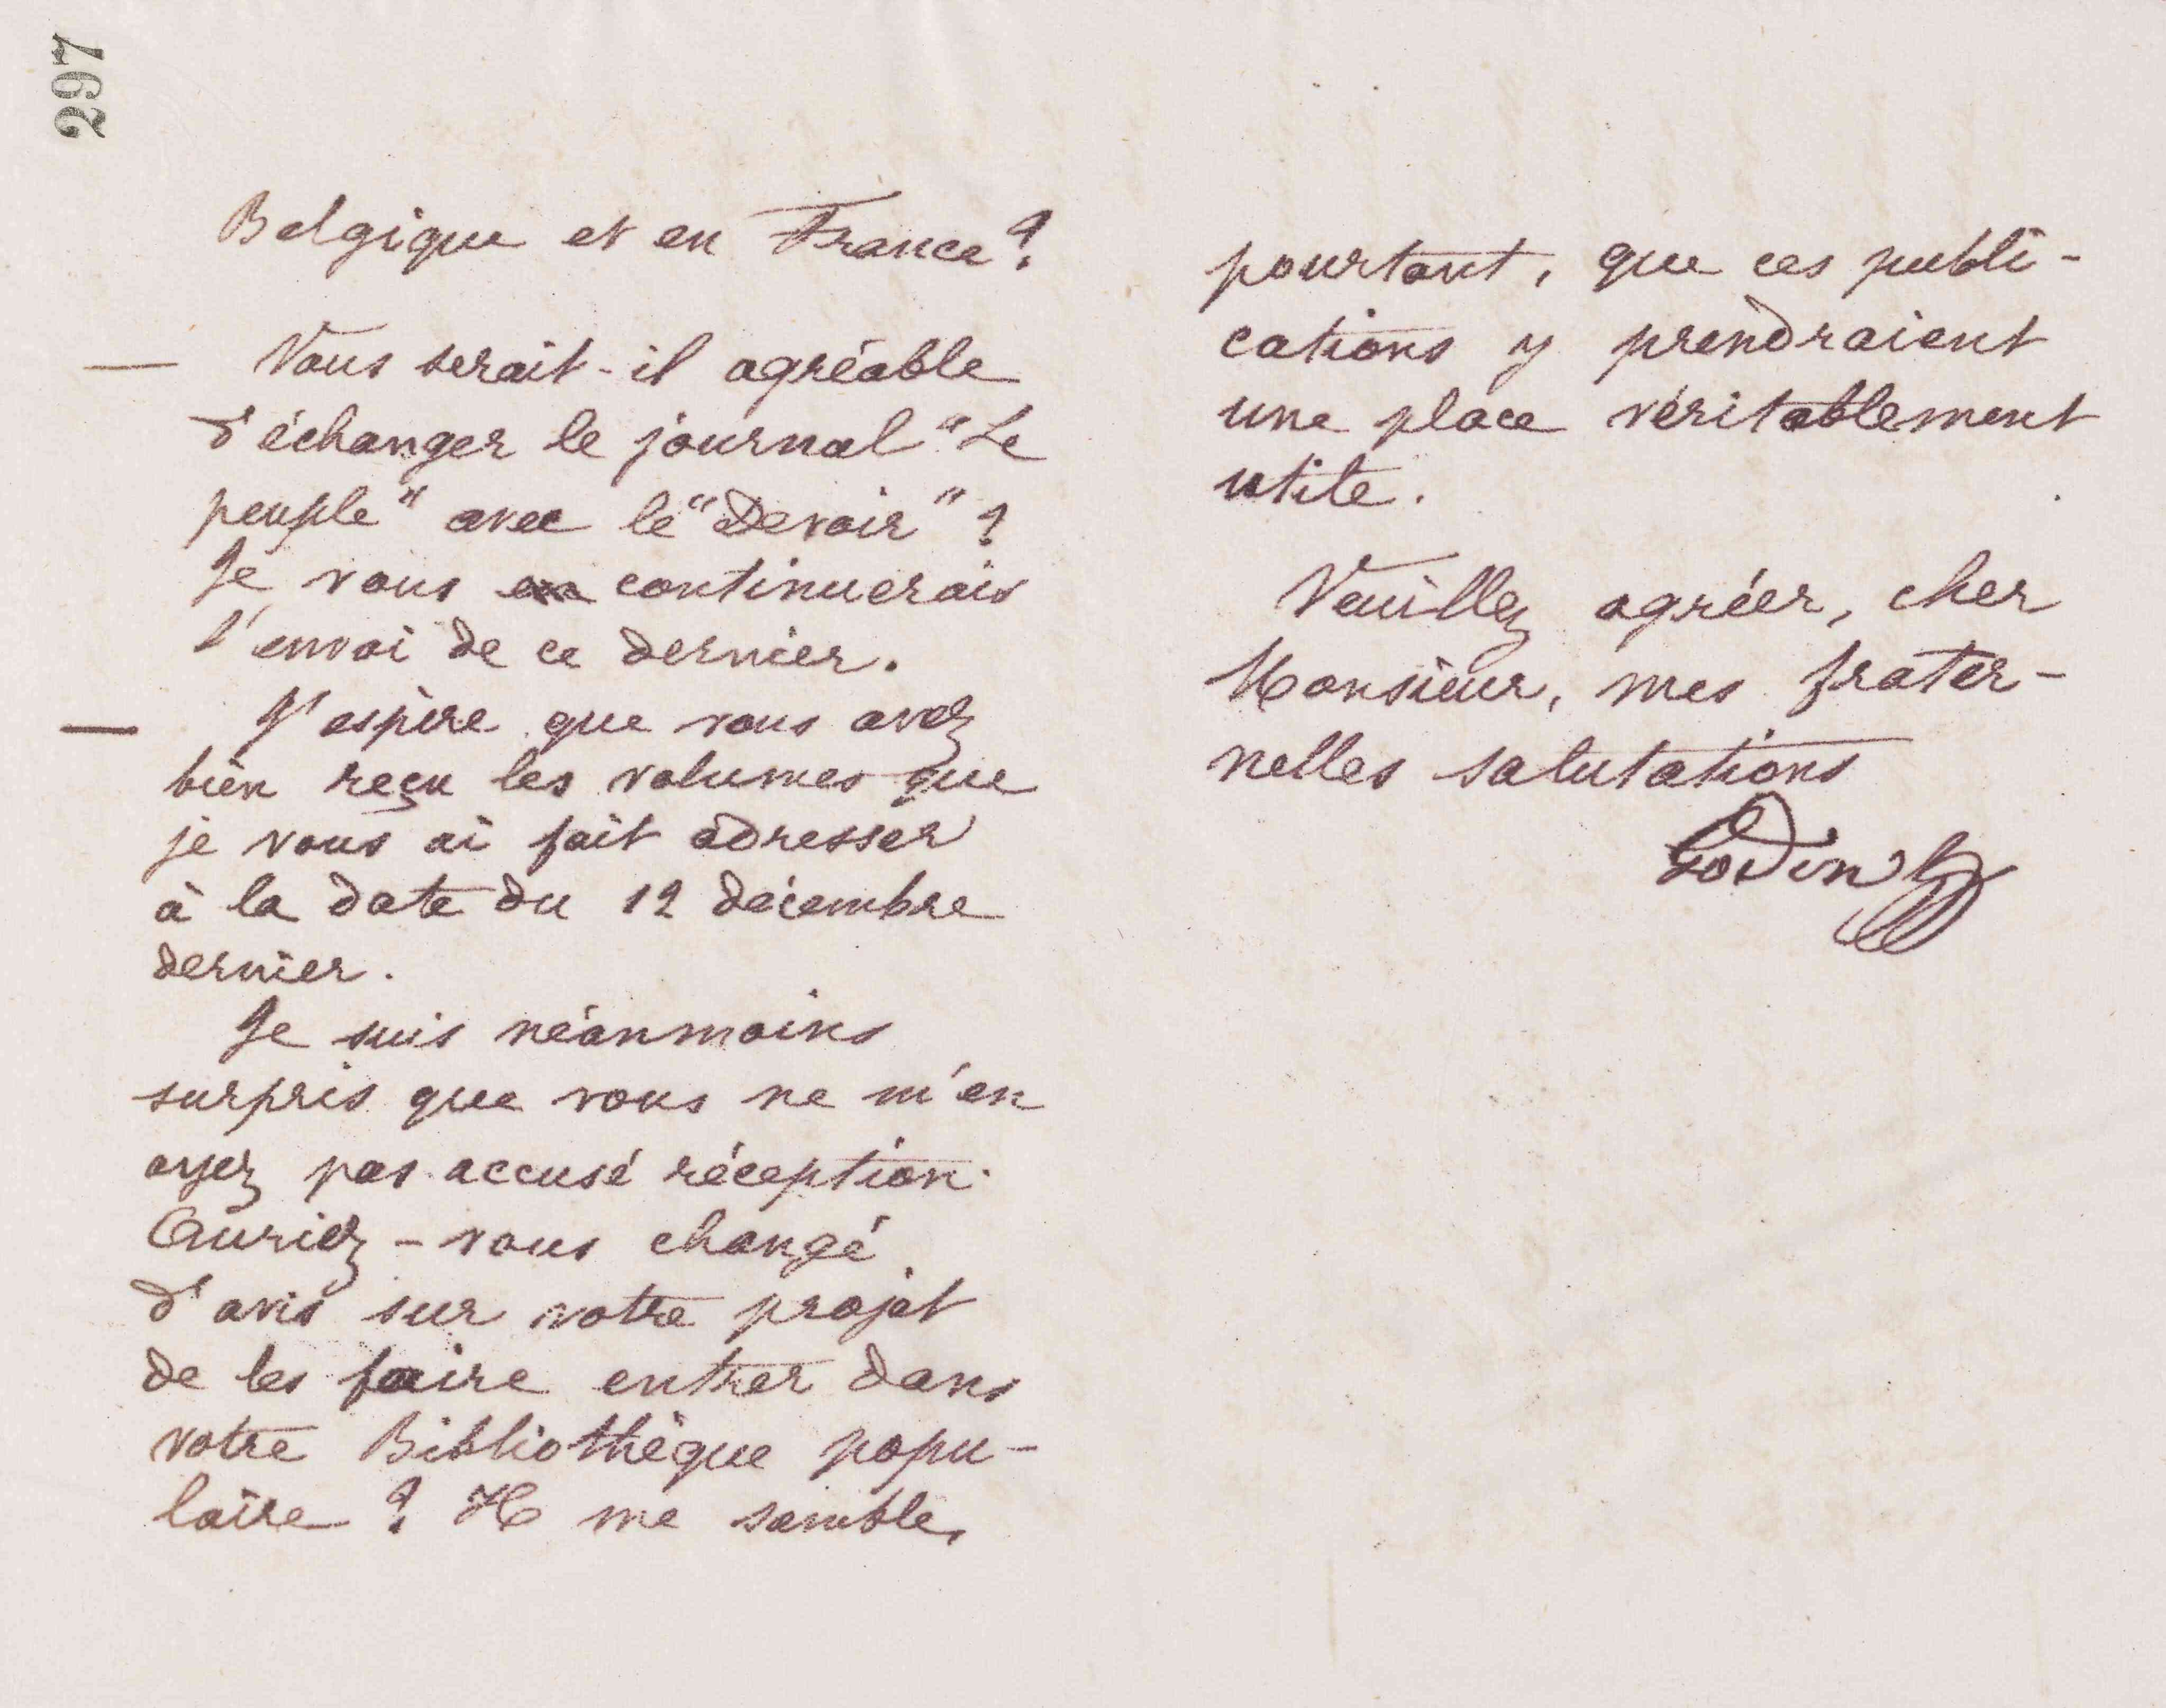 297
Belgique et en France ?
— Vous serait-il agréable
d'échanger le journal "Le
peuple" avec le "Devoir" ?
Je vous en continuerais
l'envoi de ce dernier.
— J'espère que vous avez
bien reçu les volumes que
je vous ai fait adresser
à la date du 12 décembre
dernier.
Je suis néanmoins
surpris que vous ne m'en
ayez pas accusé réception.
Auriez-vous changé
d'avis sur votre projet
de les faire entrer dans
votre Bibliothèque popu-
laire ? Il me semble,
pourtant, que ces publi-
cations y prendraient
une place véritablement
utile.
Veuillez agréer, cher
Monsieur, mes frater-
nelles salutations
Godin